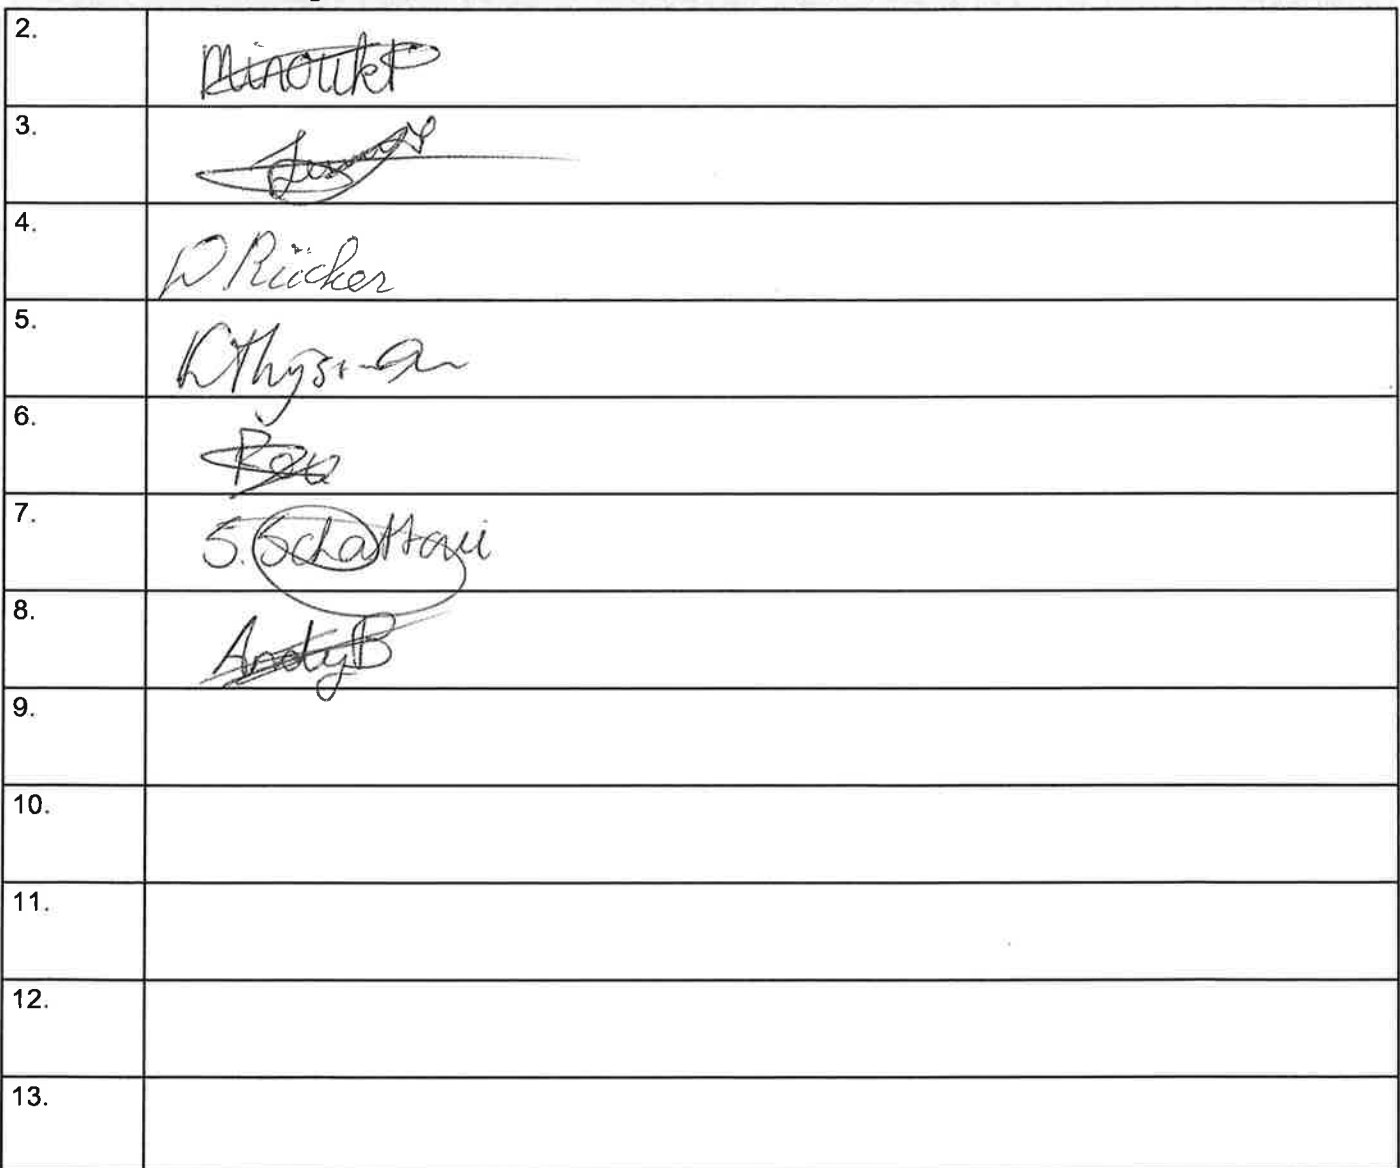 2. MinoukP
3.
4. D Rücker
5.
6.
7. S. Schattoni
8. AndyB
9.
10.
11.
12.
13.